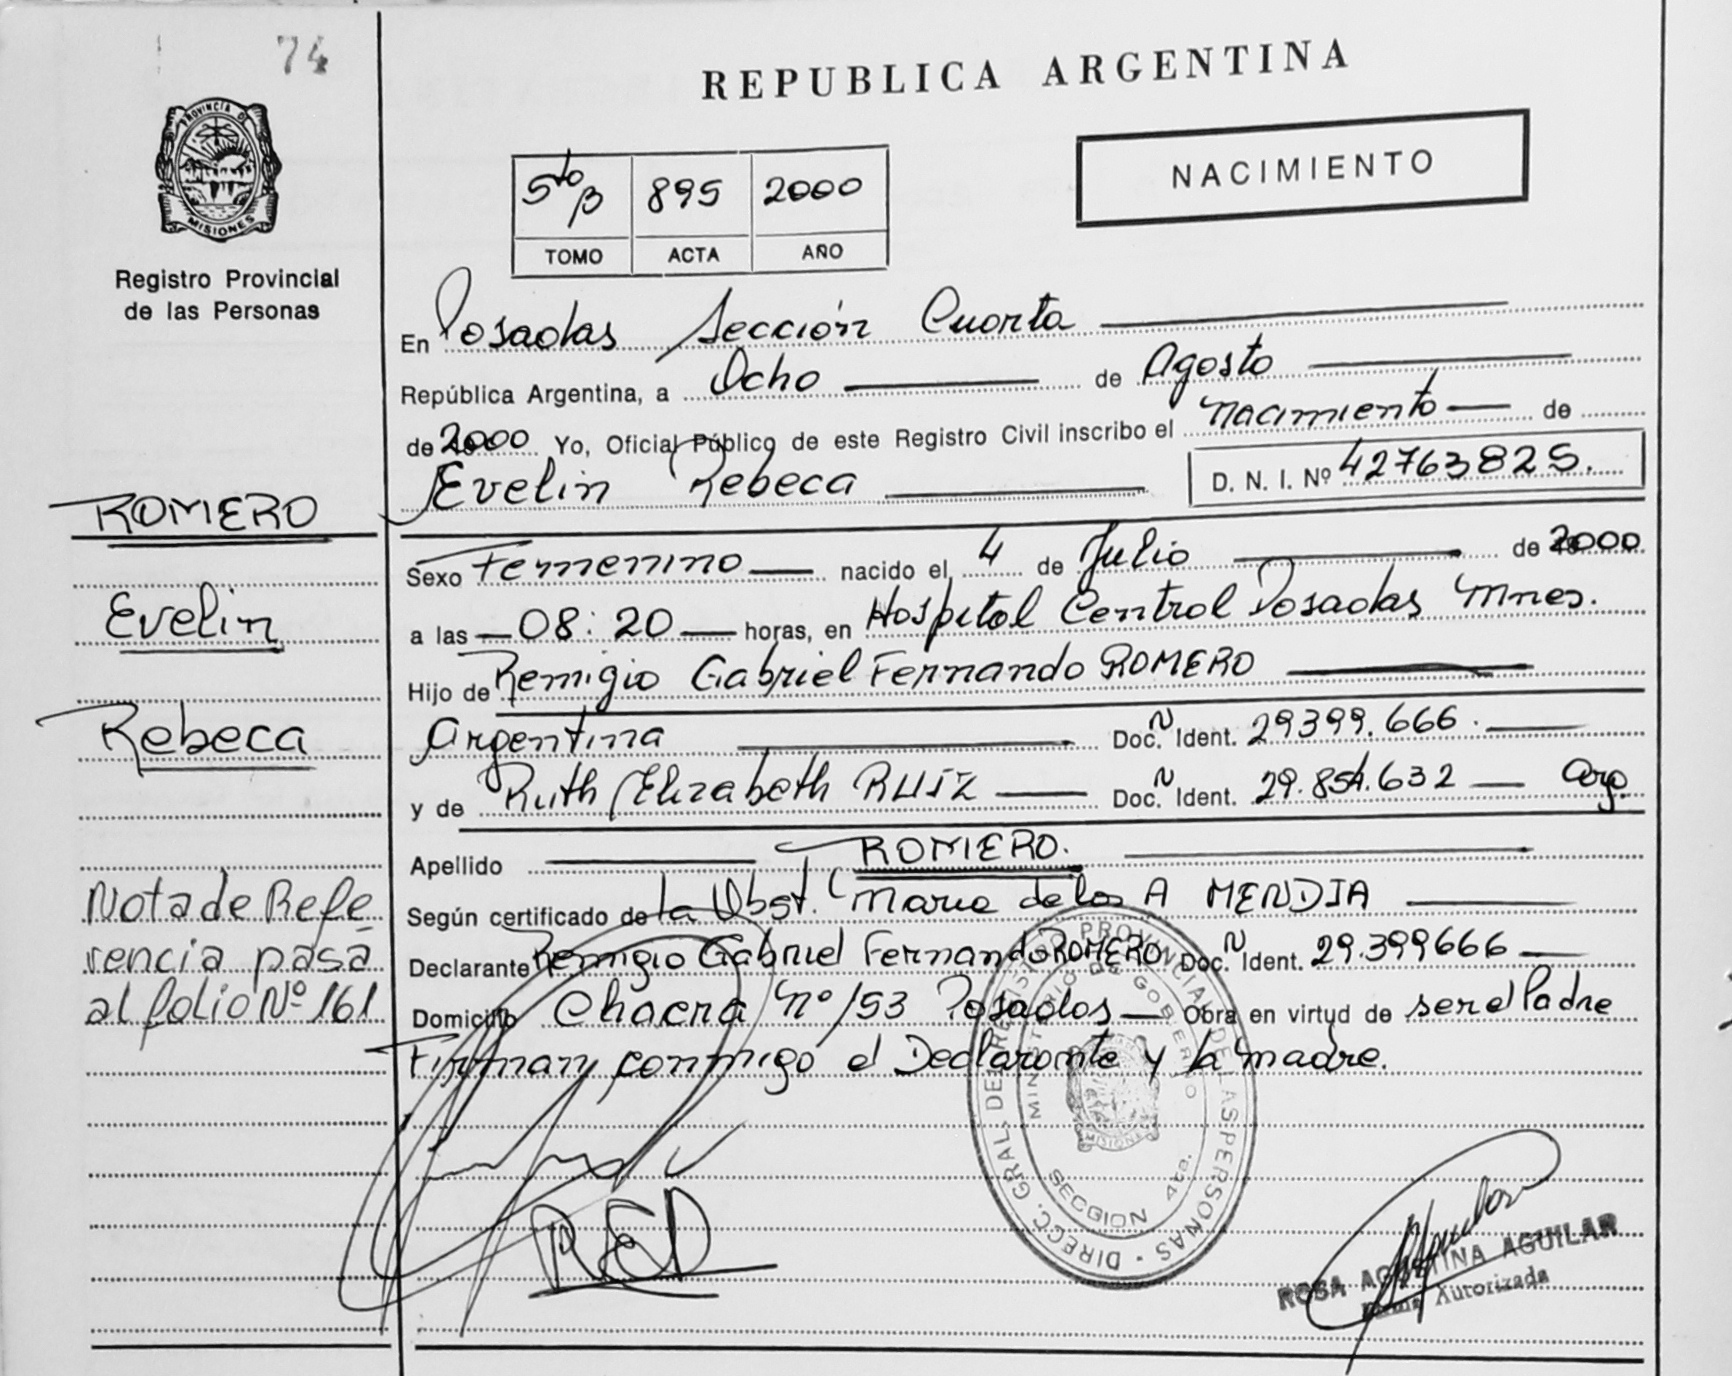 74
PROVINCIA DE
MISIONES
Registro Provincial
de las Personas
ROMERO
Evelin
Rebeca
Nota de Refe
rencia pasa
al folio Nº 161
REPUBLICA ARGENTINA
5to B 895 2000
TOMO ACTA AÑO
NACIMIENTO
En Posadas Sección Cuarta
República Argentina, a Ocho de Agosto
de 2000 Yo, Oficial Público de este Registro Civil inscribo el nacimiento de
Evelin Rebeca D. N. I. Nº 42763825.
Sexo Femenino nacido el 4 de Julio de 2000
a las 08:20 horas, en Hospital Central Posadas Mnes.
Hijo de Remigio Gabriel Fernando ROMERO
Argentina Doc. Ident. 29399.666.
y de Ruth Elizabeth RUIZ Doc. Ident. 29.854.632 Arg.
Apellido ROMERO.
Según certificado de la Obst. Maria de los A MENDIA
Declarante Remigio Gabriel Fernando ROMERO Doc. Ident. 29.399666
Domicilio Chacra Nº 153 Posadas Obra en virtud de ser el Padre
Firman conmigo el Declarante y la madre.
DIRECC. GRAL. DEL REGISTRO PROVINCIAL DE LAS PERSONAS
MINISTERIO DE GOBIERNO
MISIONES
SECCION 4ta.
ROSA AGUSTINA AGUILAR
Firma Autorizada